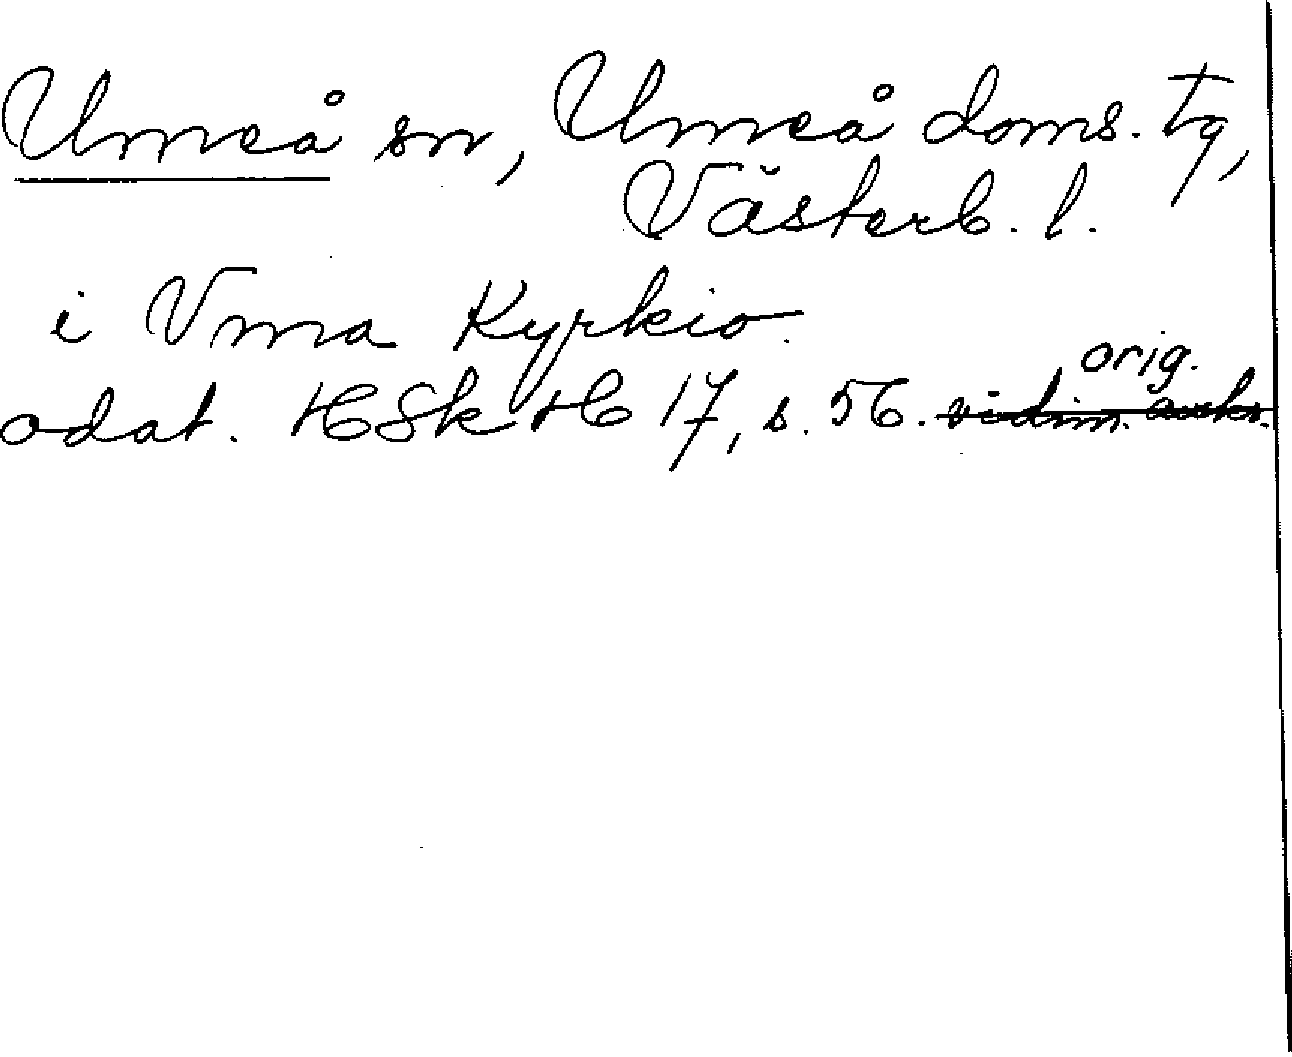 Umeå sn, Umeå doms. tg,
Västerb. l.
i Vma Kyrkio.
orig.
odat. HSH H 17, s. 56. vidim. avskr.